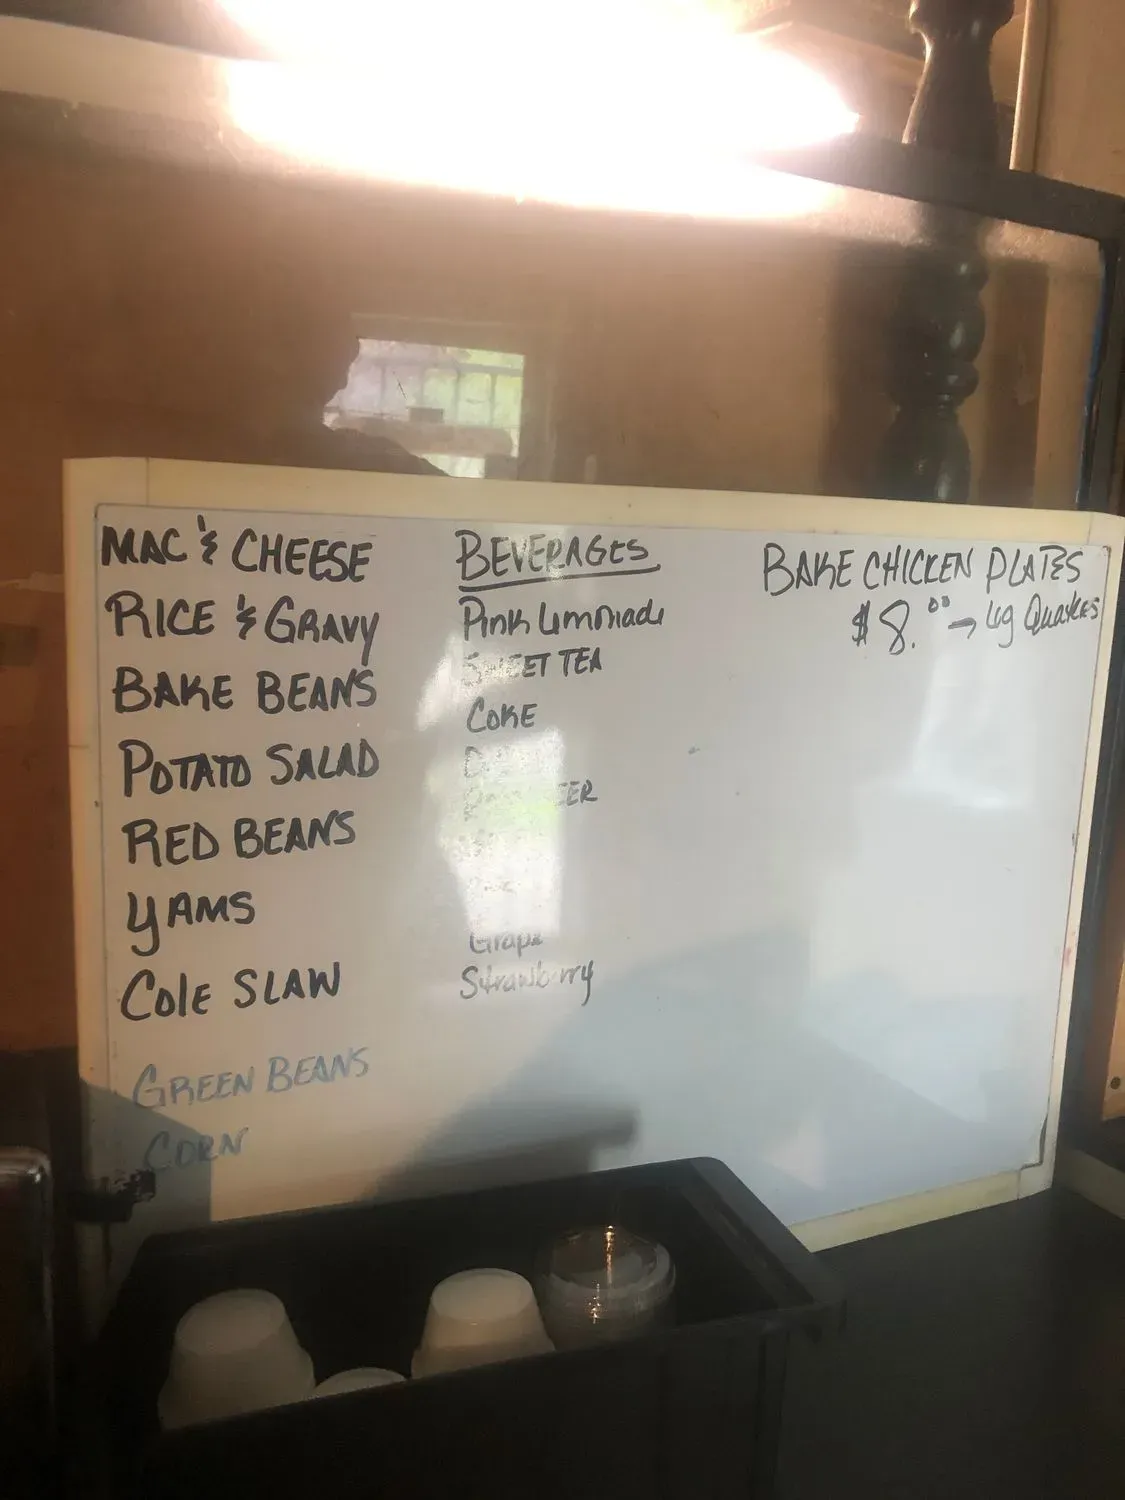 MAC & CHEESE
RICE & GRAVY
BAKE BEANS
POTATO SALAD
RED BEANS
YAMS
Cole SLAW
GREEN BEANS
CORN
BEVERAGES
Pink Lemonade
SWEET TEA
COKE
Grape
Strawberry
BAKE CHICKEN PLATES
$8.00 → Leg Quarters